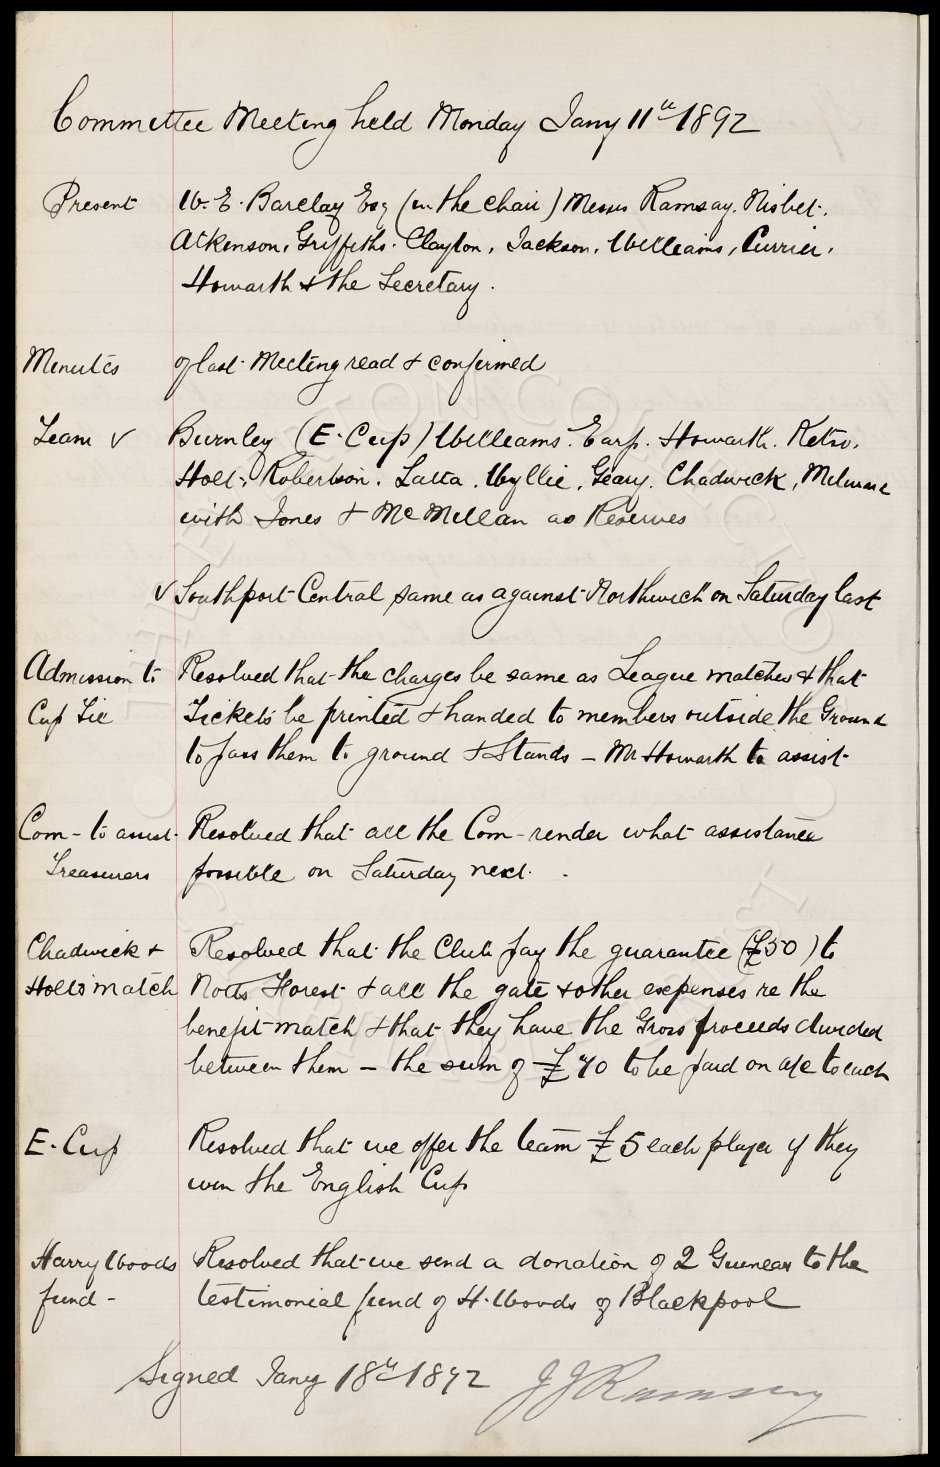 Committee Meeting held Monday Jany 11th 1892
Present W. E. Barclay Esq (in the chair) Messrs Ramsay. Nisbet.
Atkinson. Griffiths. Clayton. Jackson. Williams, Currier.
Howarth & the Secretary.
Minutes of last Meeting read & confirmed
Team ✓ Burnley (E. Cup) Williams. Earp. Howarth. Kelso.
Holt. Robertson. Latta. Wyllie. Geary. Chadwick, Milward
with Jones & McMillan as Reserves
✓ Southport Central same as against Northwich on Saturday last
Admission to Resolved that the charges be same as League matches & that
Cup Tie Tickets be printed & handed to members outside the Ground
to pass them to ground & Stands – Mr Howarth to assist
Com – to assist Resolved that all the Com – render what assistance
Treasurers possible on Saturday next.
Chadwick & Resolved that the Club pay the guarantee (£50) to
Holts match Notts Forest & all the gate & other expenses re the
benefit match & that they have the Gross proceeds divided
between them – the sum of £70 to be paid on a/c to each
E. Cup Resolved that we offer the team £5 each player if they
win the English Cup
Harry Woods Resolved that we send a donation of 2 Guineas to the
fund – testimonial fund of H. Woods of Blackpool
Signed Jany 18th 1892 J J Ramsay